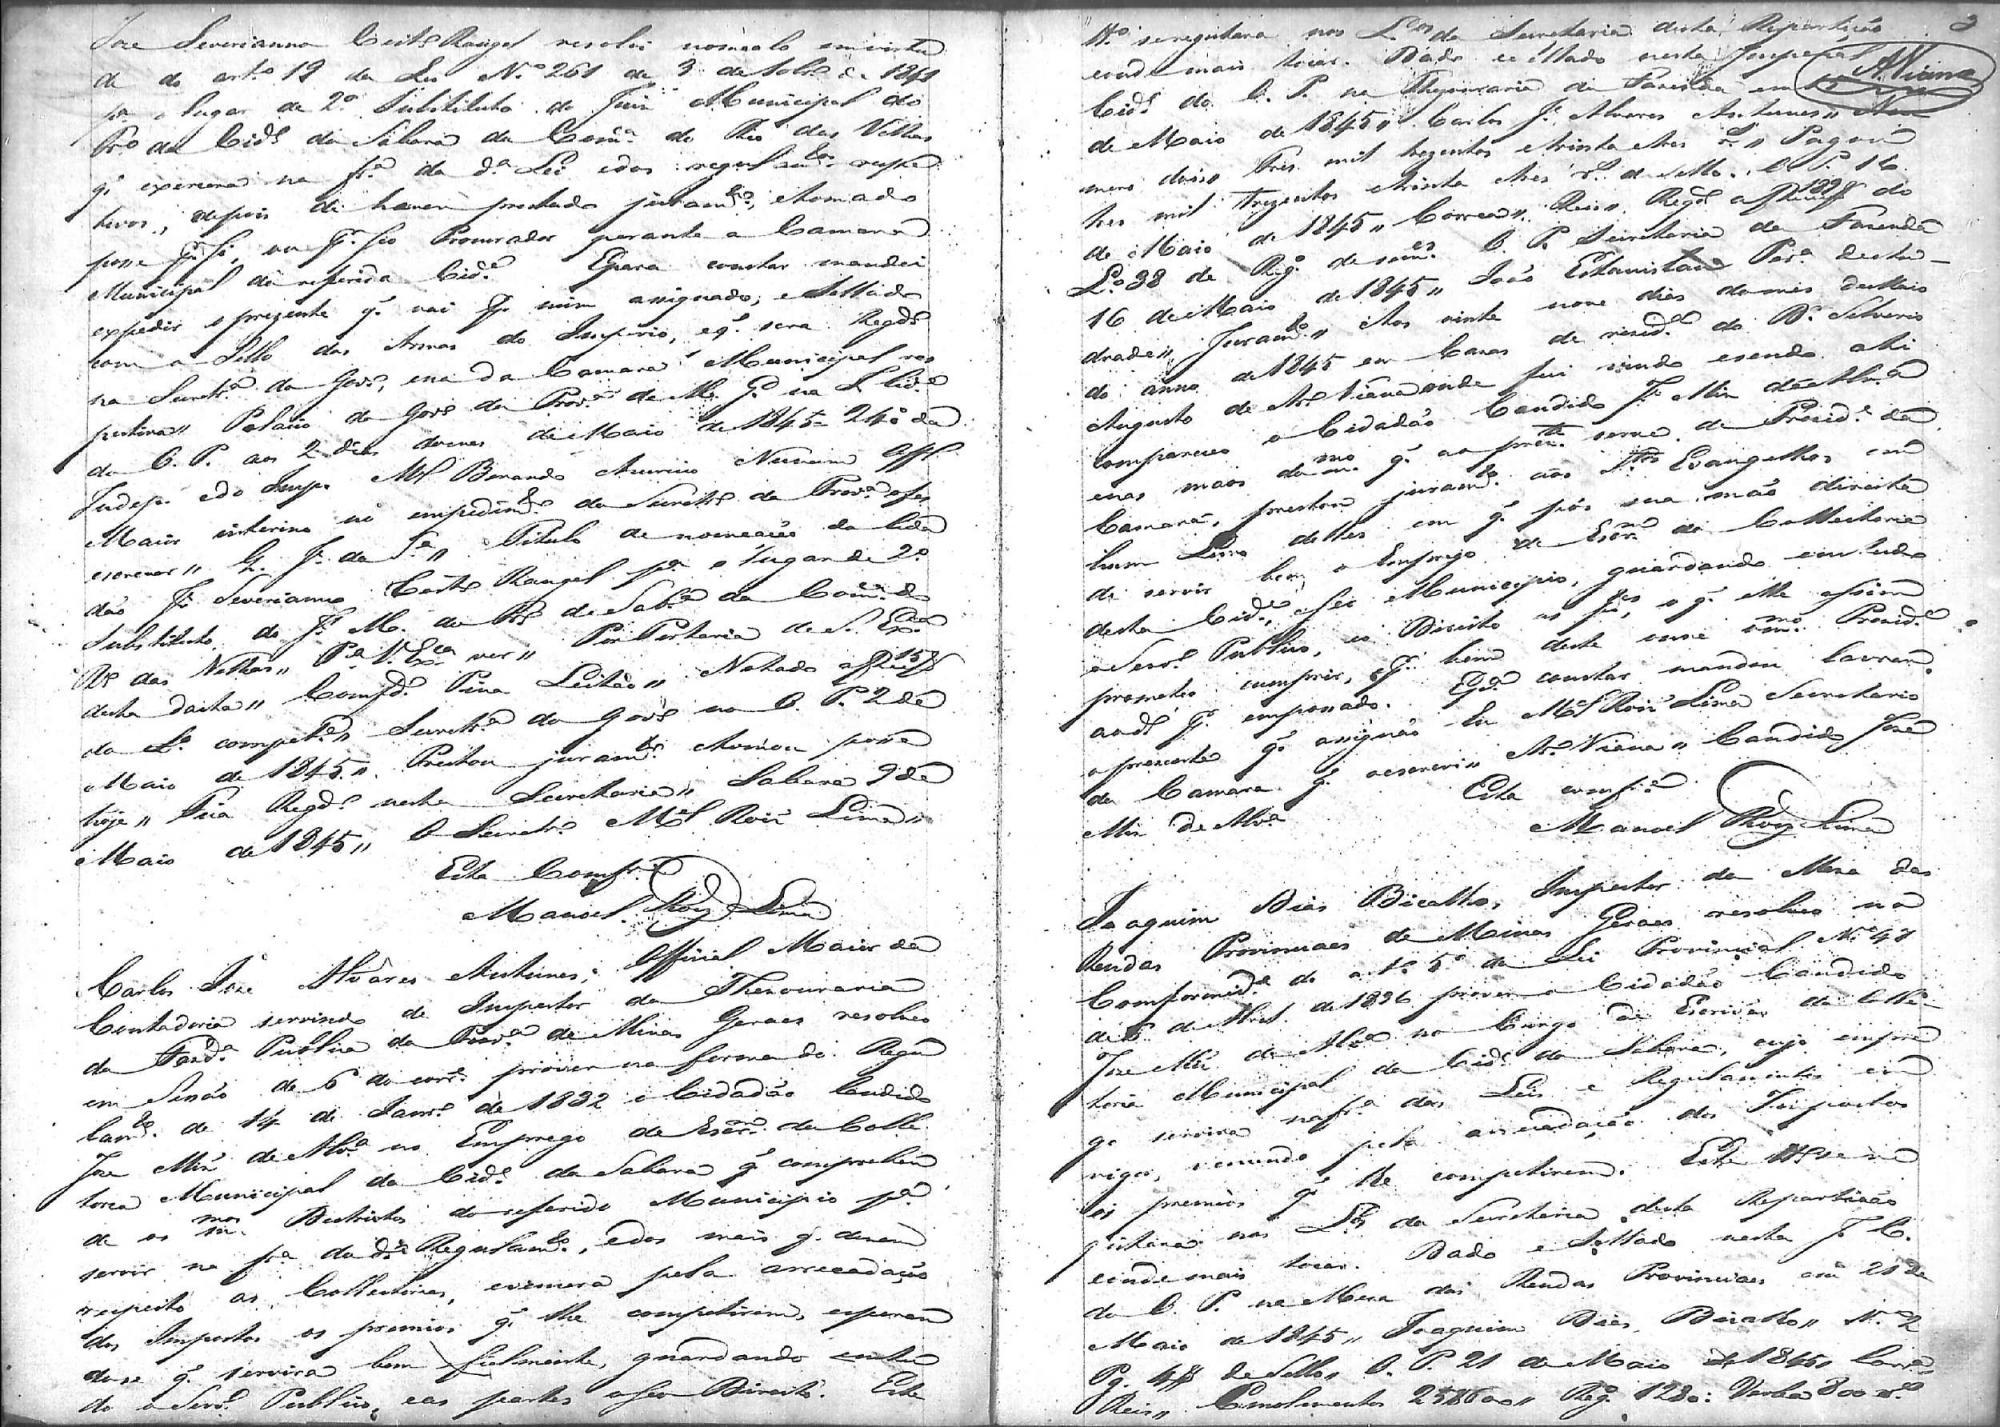 Joze Severianno Corte Rangel resolvi nomealo em virtu
de do art.º 19 da Lei N.º 261 de 3 de de 1841
pª o lugar de 2º Substituto do Juiz Municipal do
da Cidᵉ do Sabara da Comª do Rio das Velhas
q exercerá na fª da dª Lei e dos regulamtos respe
tivos, depois de haver prestado juramtº, e tomado
posse pr si, ou pr seo Procurador perante a Camara
Municipal da referida Cidᵉ Epara constar mandei
expedir o prezente q vai pr mim assignado, e Sellado
com o Sello das Armas do Imperio, e q sera Regdº
na Secretª do Govº, e na da Camara Municipal res
pectiva,, Palacio do Govº da Provª de M. Gˢ na I. Cidᵉ
do O. P. aos 2 dias do mez de Maio de 1845 = 24º da
Indep. e do Impº Ml Bernardo Nunam Offl
Maior interino no impedimtº do Secretº da Provª o fez
escrever,, J. da Sª,, Titulo de nomeação do Cida
dão Jᵉ Severianno Corte Rangel pª o lugar de 2º
Substituto do Jz M. de Sabª da Comª do
Rº das Velhas,, Pª V. Exca ver,, Por Portaria de S. Exca
desta data,, Pina Leitão,, Notado a f 15
do Lº competᵉ,, Secretª do Govº no O. P. 2 de
Maio de 1845.,, Prestou juramtº e tomou posse
hoje,, Fica Regdº nesta Secretaria,, Sabara 9 de
Maio de 1845,, O Secretº Mel Roiz Lima,,
Está Confᵉ
Manoel Roiz Lima
Carlos Joze Alvares Antunes, Official Maior da
Contadoria servindo de Inspector da Thesouraria
da Fazdª Publica da Provª de Minas Geraes resolveo
em Sessão de 6 do corrᵉ prover na forma do Regu
lamtº de 14 de Janrº de 1832 o Cidadão Candido
Joze Miz de Almª no Emprego de Escrm da Colle
toria Municipal da Cidᵉ do Sabara q comprehen
de os mmos Districtos do referido Municipio pª
servir na fª do dº Regulamtº, e dos mais q dizem
respeito as Collectorias, e vencerá pela arrecadação
dos Impostos os premios q lhe competirem, esperan
dose q servirá bem fielmente, guardando em tu
do o Servº Publico, e as partes o seo Direito. Este
3
AViana
se registara nos Los da Secretaria desta Repartição
e onde mais tocar. Dado e Sellado nesta Imperial
Cidᵉ do O. P. na Thezouraria da Fazenda em
de Maio de 1845,, Carlos Jᵉ Alvares Antunes,, Nu
mero dous,, Tres mil trezentos e trinta e tres rs,, Pagou
tres mil trezentos e trinta e tres rs de sello. O. P. 16
de Maio de 1845,, Correa,, Reis,, Regdº a f do
Lº 38 de Regº de O. P. Secretaria da Fazenda
16 de Maio de 1845,, João Estanisláo
drade,, Juramtº,, Aos vinte nove dias do mes de Maio
do anno de 1845 em Cazas de residª do Dr Silverio
Augusto de Arº Viana onde fui vindo e sendo ahi
compareceo o Cidadão Candido Jᵉ Miz de Almª
e nas maos do mmo q ao prezte serve de Prezidᵉ da
Camara, prestou juramtº aos Stos Evangelhos em
hum Livro delles em q pôs sua mão direita
de servir bem o Emprego de Escrm da Collectoria
desta Cidᵉ, e seo Municipio, guardando em tudo
o Servº Publico, e o Direito as ptes, o q elle assim
prometeo cumprir, e pr bem deste ouve o mmo Prezidᵉ
ao dº pr empossado. Epª constar mandou lavrar
o prezente q assignão Eu Mel Roiz Lima Secretario
da Camara q o escrevi,, Arº Viana,, Candido Joze
Miz de Almª Está confᵉ
Manoel Roiz Lima
Joaquim Dias Bicalho, Inspector da Meza das
Rendas Provinciaes de Minas Geraes resolveo na
Comformidᵉ do artº 5º da Lei Provincial Nº 49
de 6 de Abril de 1836 prover o Cidadão Candido
Joze Miz de Almª no Cargo de Escrivão da Collec
toria Municipal da Cidᵉ do Sabara, cujo empre
go servirá na fª das Leis e Regulamentos em
vigor, vencendo pela arrecadação dos Impostos
os premios q lhe competirem. Este se re
gistará nos Los da Secretaria desta Repartição
e onde mais tocar. Dado e Sellado nesta I. C.
do O. P. na Meza das Rendas Provinciaes em 21 de
Maio de 1845,, Joaquim Dias Bicalho,, Nº 2
Pg. de Sello,, O. P. 21 de Maio de 1845,,
Reis,, Emolumentos Regº 1280: Verba 800 rs